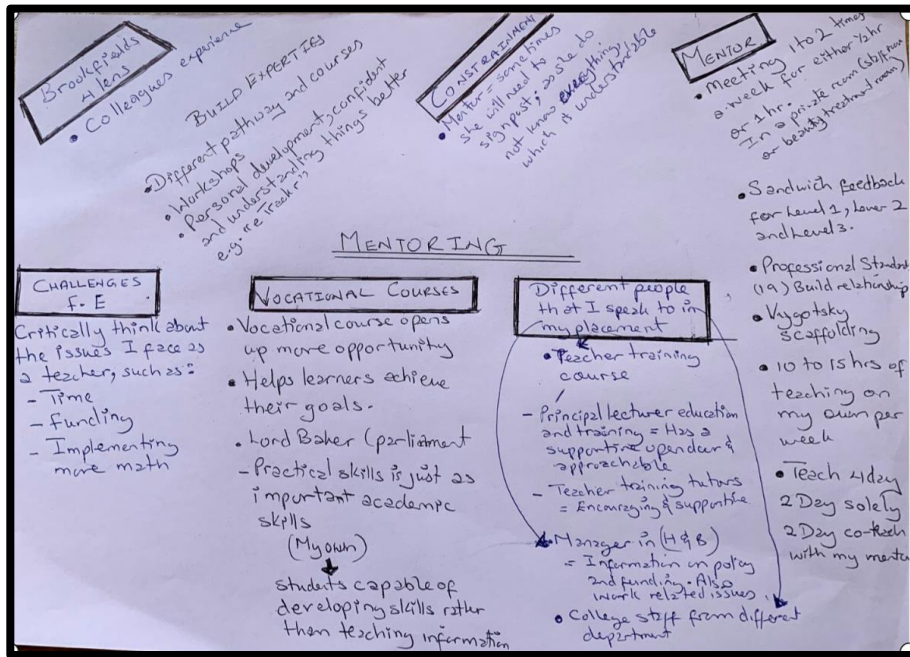 Brookfields
4 lens
• Colleagues experience
BUILD EXPERTIES
• Different pathway and courses
• Workshops
• Personal development, confident
and understanding things better
e.g. "e Trackr"
CONSTRAINMENT
• Mentor = sometimes
she will need to
signpost; so she do
not know everything,
which is understandable
MENTOR
• Meeting 1 to 2 times
a week for either 1/2hr
or 1hr.
In a private room
or beauty treatment room)
• Sandwich feedback
for Level 1, Lever 2
and Level 3.
• Professional Standard
(19) Build relationship
• Vygotsky
scaffolding
• 10 to 15 hrs of
teaching on
my own per
week
• Teach 4day
2 Day solely
2 Day co-teach
with my mento
MENTORING
CHALLENGES
F.E
Critically think about
the issues I face as
a teacher, such as:
- Time
- Funding
- Implementing
more math
VOCATIONAL COURSES
• Vocational course opens
up more opportunity
• Helps learners achieve
their goals.
• Lord Baker (parliament
- Practical skills is just as
important academic
skills
(My own)
students capable of
developing skills rather
than teaching information
Different people
that I speak to in
my placement
• Teacher training
course
- Principal lecturer education
and training = Has a
supportive &
approachable
- Teacher training tutors
= Encouraging & supportive
• Manager in (H & B)
= Information on policy
and funding. Also
work related issues.
• College staff from different
department